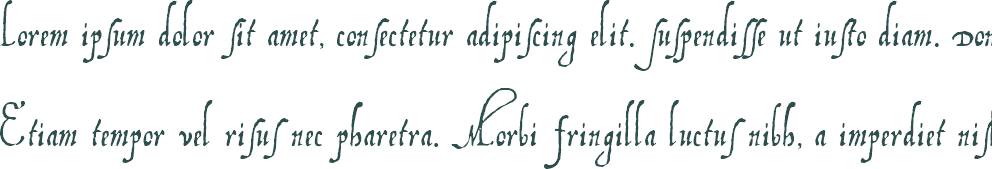 Lorem ipſum dolor ſit amet, conſectetur adipiſcing elit. Suſpendiſſe ut iuſto diam. Don
Etiam tempor vel riſus nec pharetra. Morbi fringilla luctus nibh, a imperdiet niſ